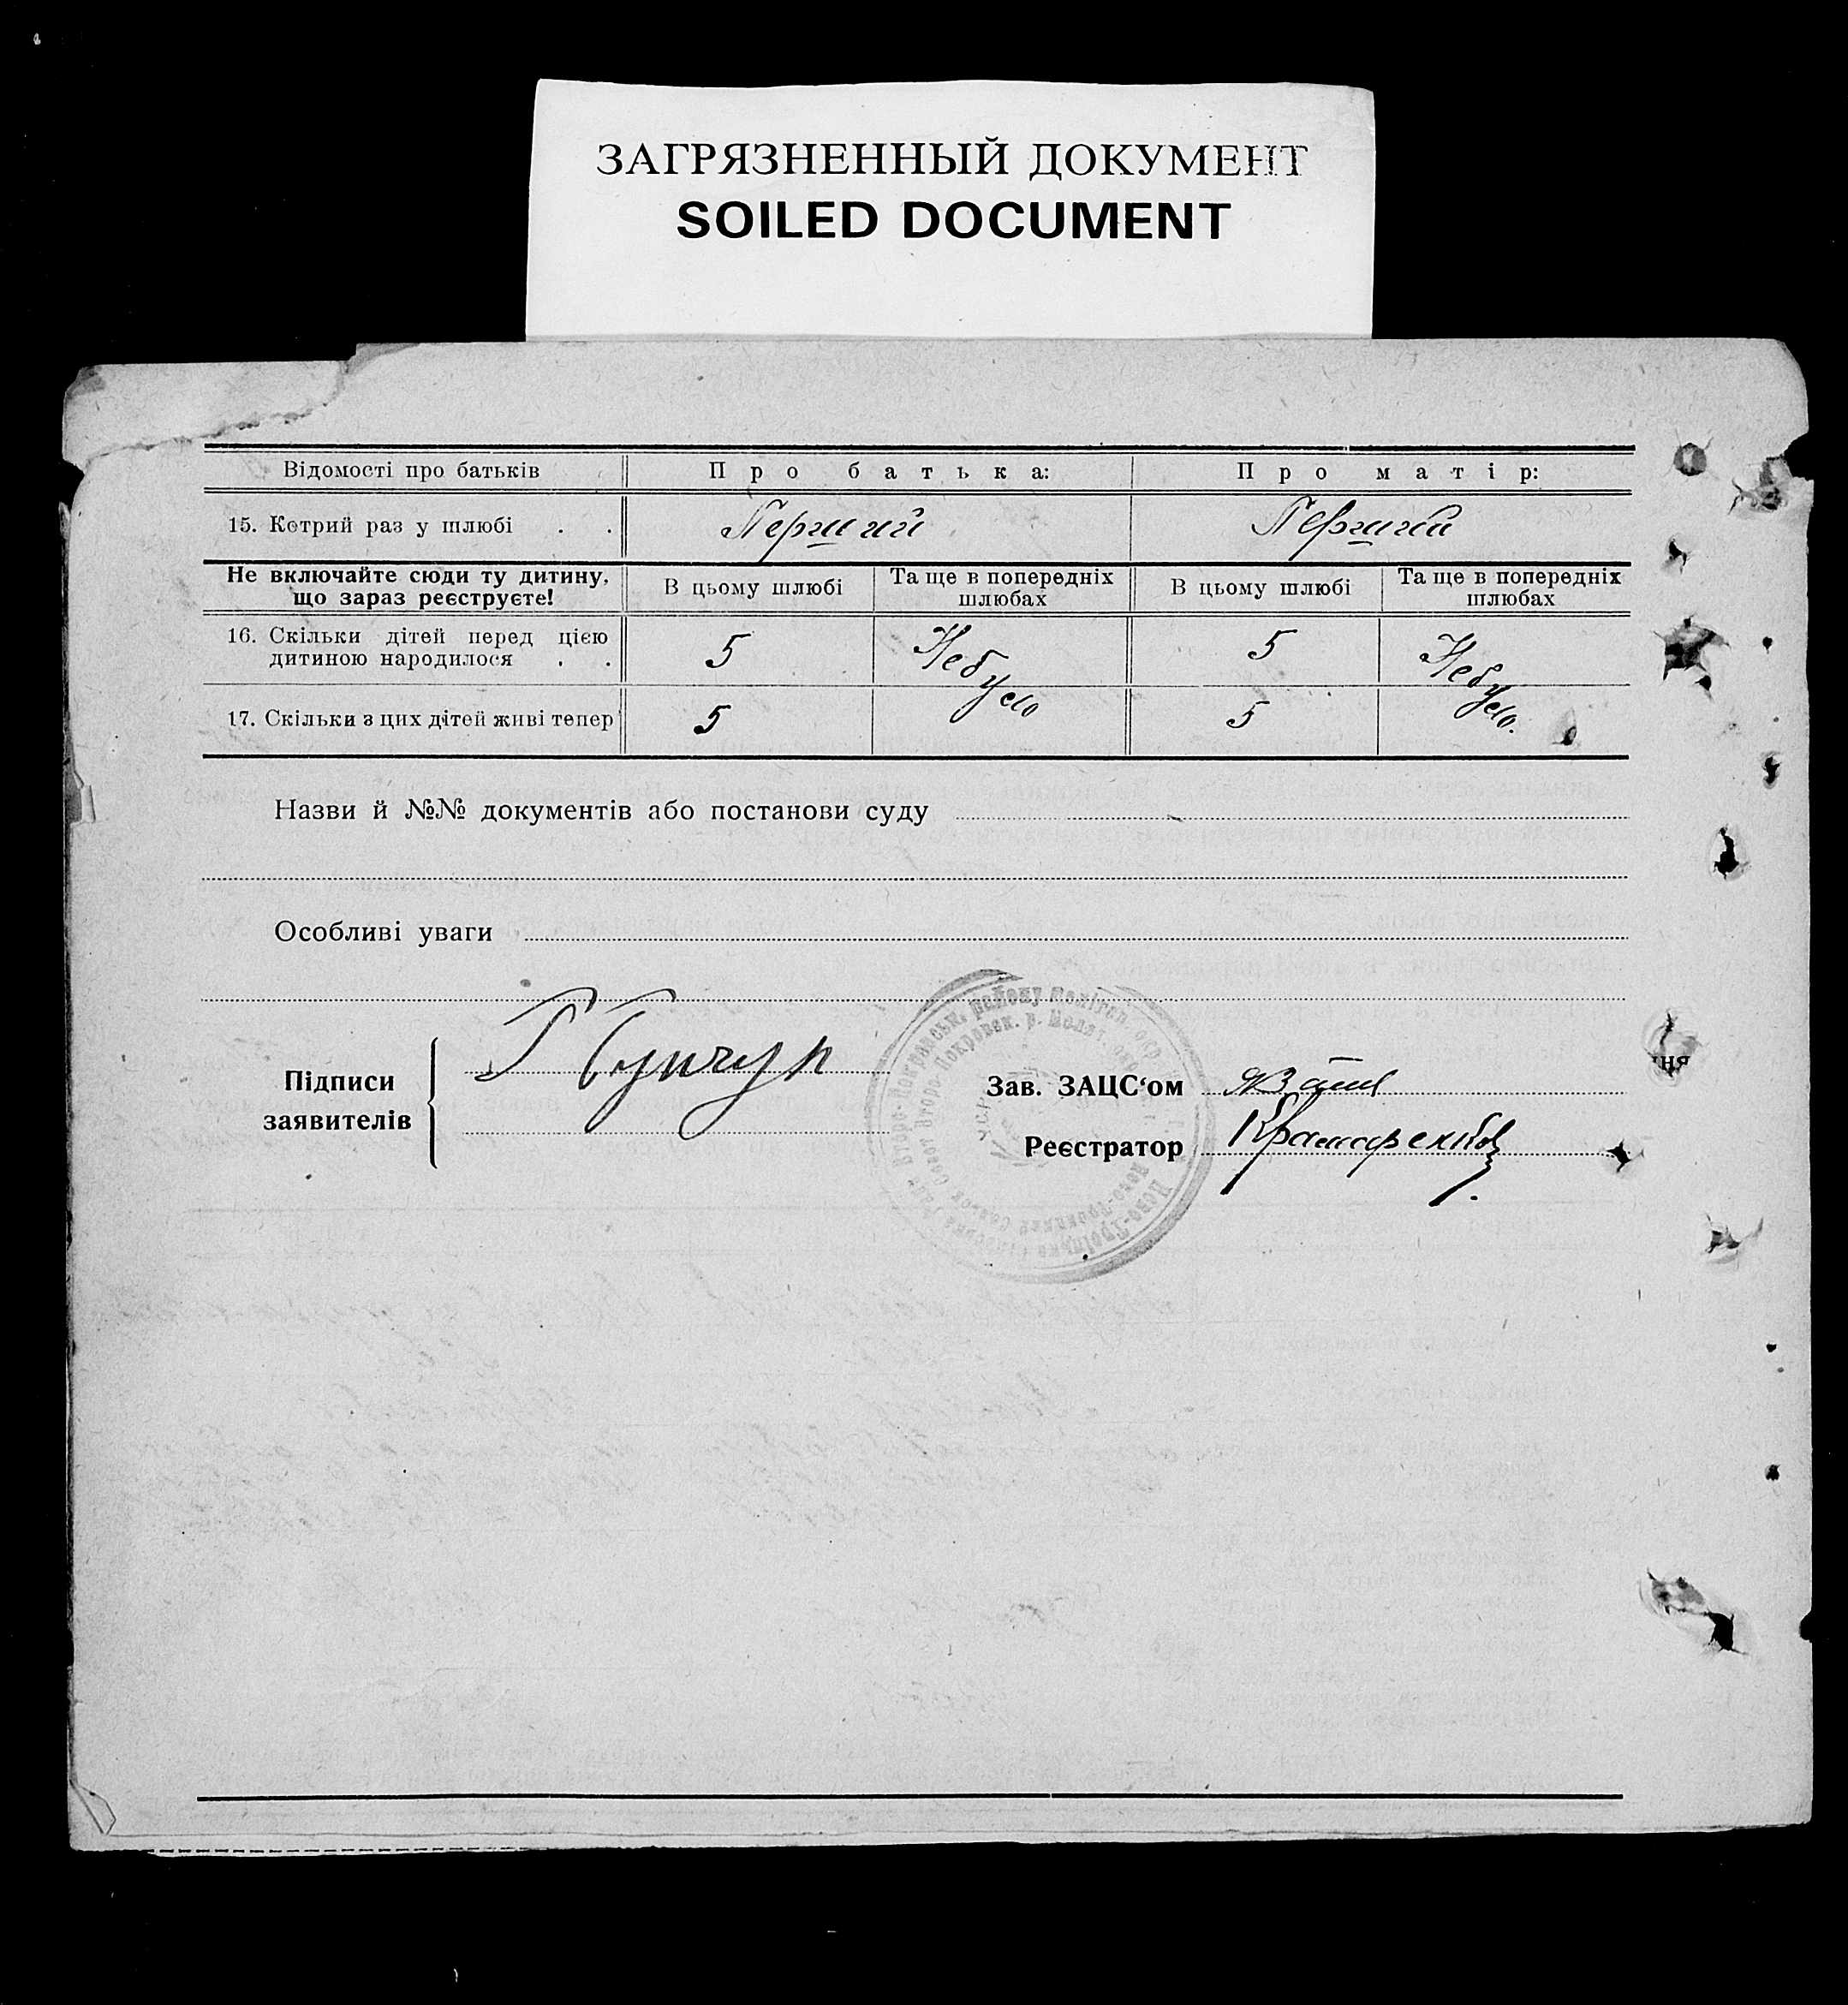 ЗАГРЯЗНЕННЫЙ ДОКУМЕНТ
SOILED DOCUMENT
Відомості про батьків Про батька: Про матір:
15. Котрий раз у шлюбі . . Перший Перший
Не включайте сюди ту дитину, що зараз реєструєте! В цьому шлюбі Та ще в попередніх шлюбах В цьому шлюбі Та ще в попередніх шлюбах
16. Скільки дітей перед цією дитиною народилося . . 5 Небуло 5 Небуло.
17. Скільки з цих дітей живі тепер 5 5
Назви й №№ документів або постанови суду
Особливі уваги
Підписи заявителів
Зав. ЗАЦС‘ом
Реєстратор
ня